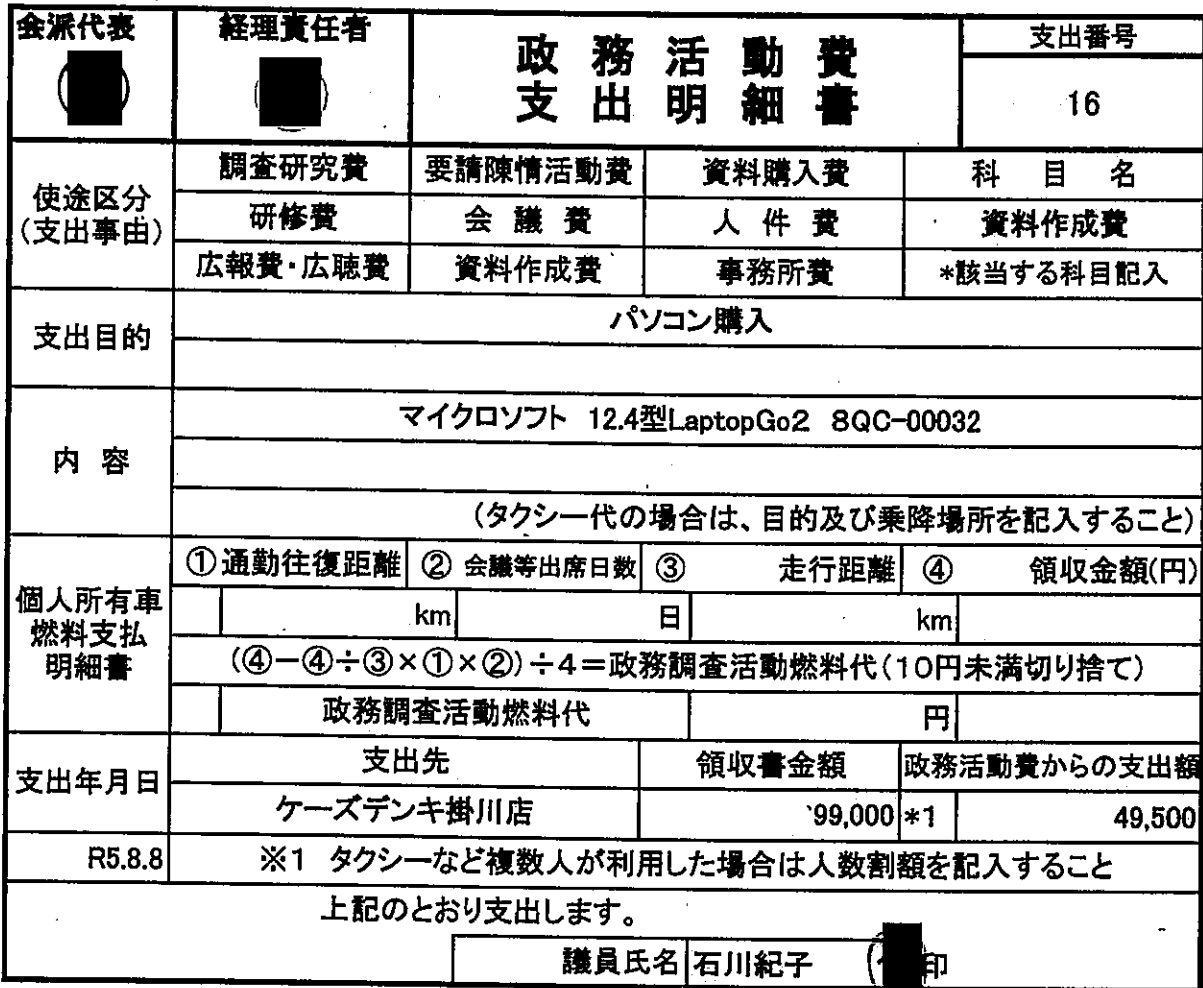 会派代表 経理責任者 政務活動費 支出番号
支出明細書 16
使途区分
(支出事由)
調査研究費 要請陳情活動費 資料購入費 科目名
研修費 会議費 人件費 資料作成費
広報費・広聴費 資料作成費 事務所費 *該当する科目記入
支出目的 パソコン購入
内容 マイクロソフト 12.4型LaptopGo2 8QC-00032
(タクシー代の場合は、目的及び乗降場所を記入すること)
個人所有車
燃料支払
明細書
①通勤往復距離 ②会議等出席日数 ③走行距離 ④領収金額(円)
km 日 km
(④-④÷③×①×②)÷4=政務調査活動燃料代(10円未満切り捨て)
政務調査活動燃料代 円
支出年月日 支出先 領収書金額 政務活動費からの支出額
ケーズデンキ掛川店 99,000 *1 49,500
R5.8.8 ※1 タクシーなど複数人が利用した場合は人数割額を記入すること
上記のとおり支出します。
議員氏名 石川紀子 印